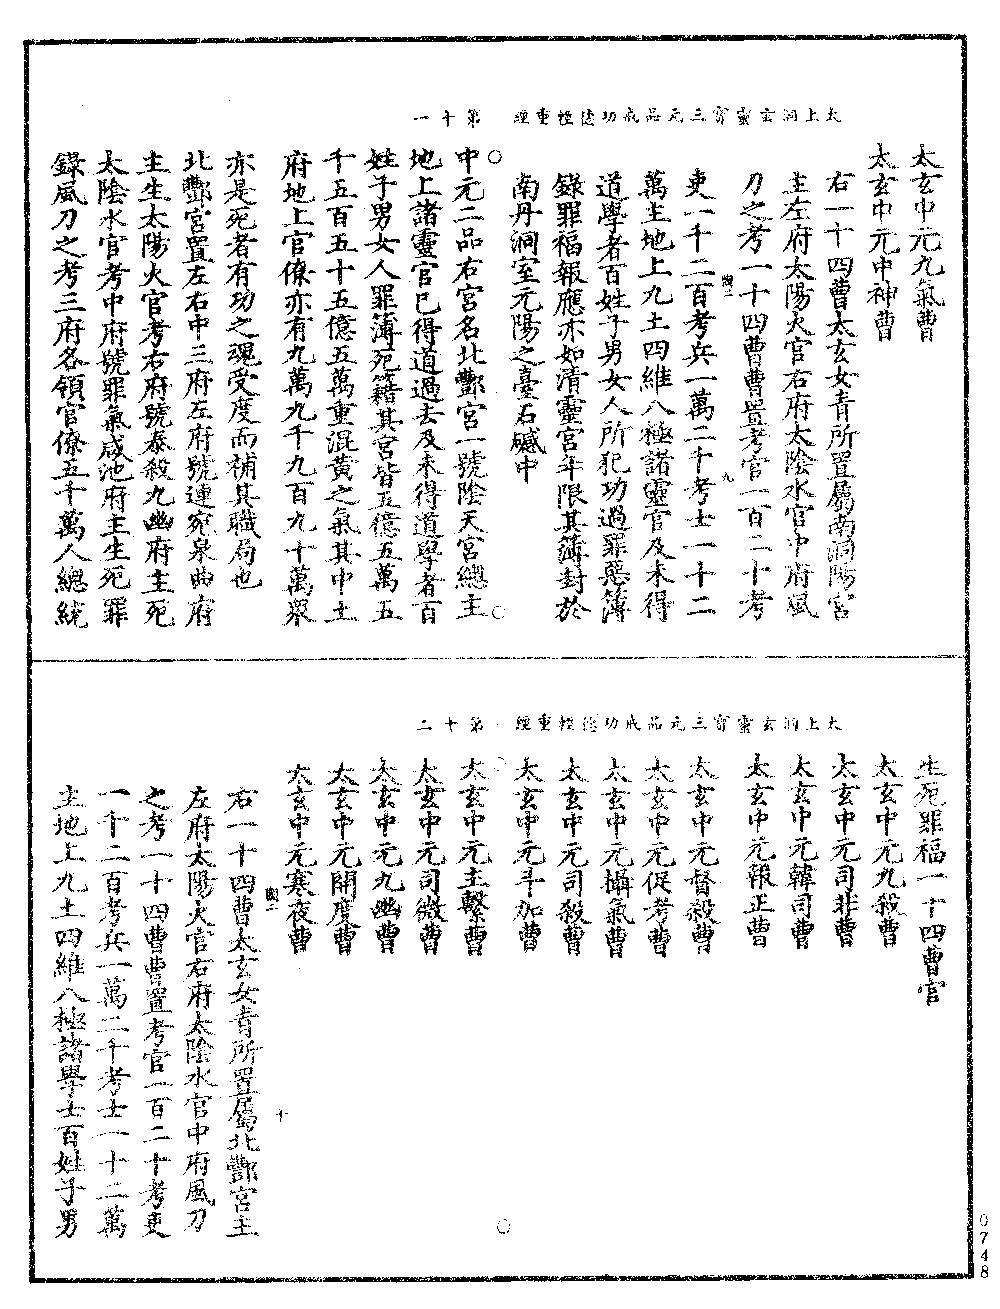 太上洞玄靈寳三元品戒功德輕重經　第十一
太玄中元九氣曹
太玄中元中神曹
右一十四曹太玄女青所置屬南洞陽宮
主左府太陽火官右府太陰水官中府風
刀之考一十四曹曹置考官一百二十考
吏一千二百考兵一萬二千考士一十二
萬主地上九土四維八極諸靈官及未得
道學者百姓子男女人所犯功過罪惡簿
錄罪福報應亦如清靈宮年限其簿封於
南丹洞室元陽之臺石䃭中
中元二品右宮名北酆宮一號陰天宮總主
地上諸靈官已得道過去及未得道學者百
姓子男女人罪簿死籍其宮皆五億五萬五
千五百五十五億五萬重混黄之氣其中土
府地上官僚亦有九萬九千九百九十萬衆
亦是死者有功之魂受度而補其職局也
北酆宮置左右中三府左府號連宛泉曲府
主生太陽火官考右府號泰殺九幽府主死
太陰水官考中府號罪氣咸池府主生死罪
錄風刀之考三府各領官僚五千萬人總統
九
太上洞玄靈寳三元品戒功德輕重經　第十二
生死罪福一十四曹官
太玄中元九殺曹
太玄中元司非曹
太玄中元韓司曹
太玄中元報正曹
太玄中元督殺曹
太玄中元促考曹
太玄中元攝氣曹
太玄中元司殺曹
太玄中元斗加曹
太玄中元主繫曹
太玄中元司微曹
太玄中元九幽曹
太玄中元開度曹
太玄中元寒夜曹
右一十四曹太玄女青所置屬北酆宮主
左府太陽火官右府太陰水官中府風刀
之考一十四曹曹置考官一百二十考吏
一千二百考兵一萬二千考士一十二萬
主地上九土四維八極諸學士百姓子男
十
0748